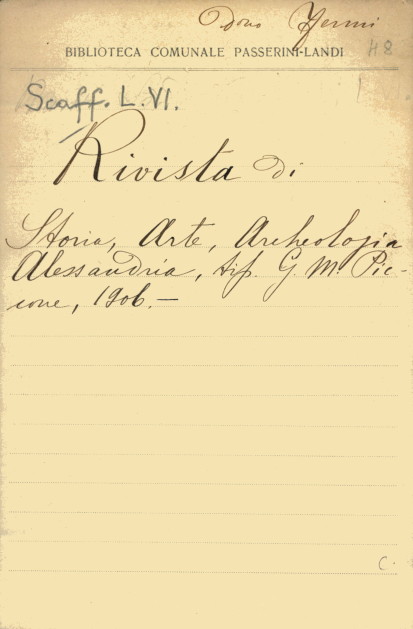 Dono Fermi
BIBLIOTECA COMUNALE PASSERINI-LANDI 48
Scaff. L. VI.
Rivista di
Storia, Arte, Archeologia
Alessandria, tip. G. M. Pic-
cone, 1906.—
C.